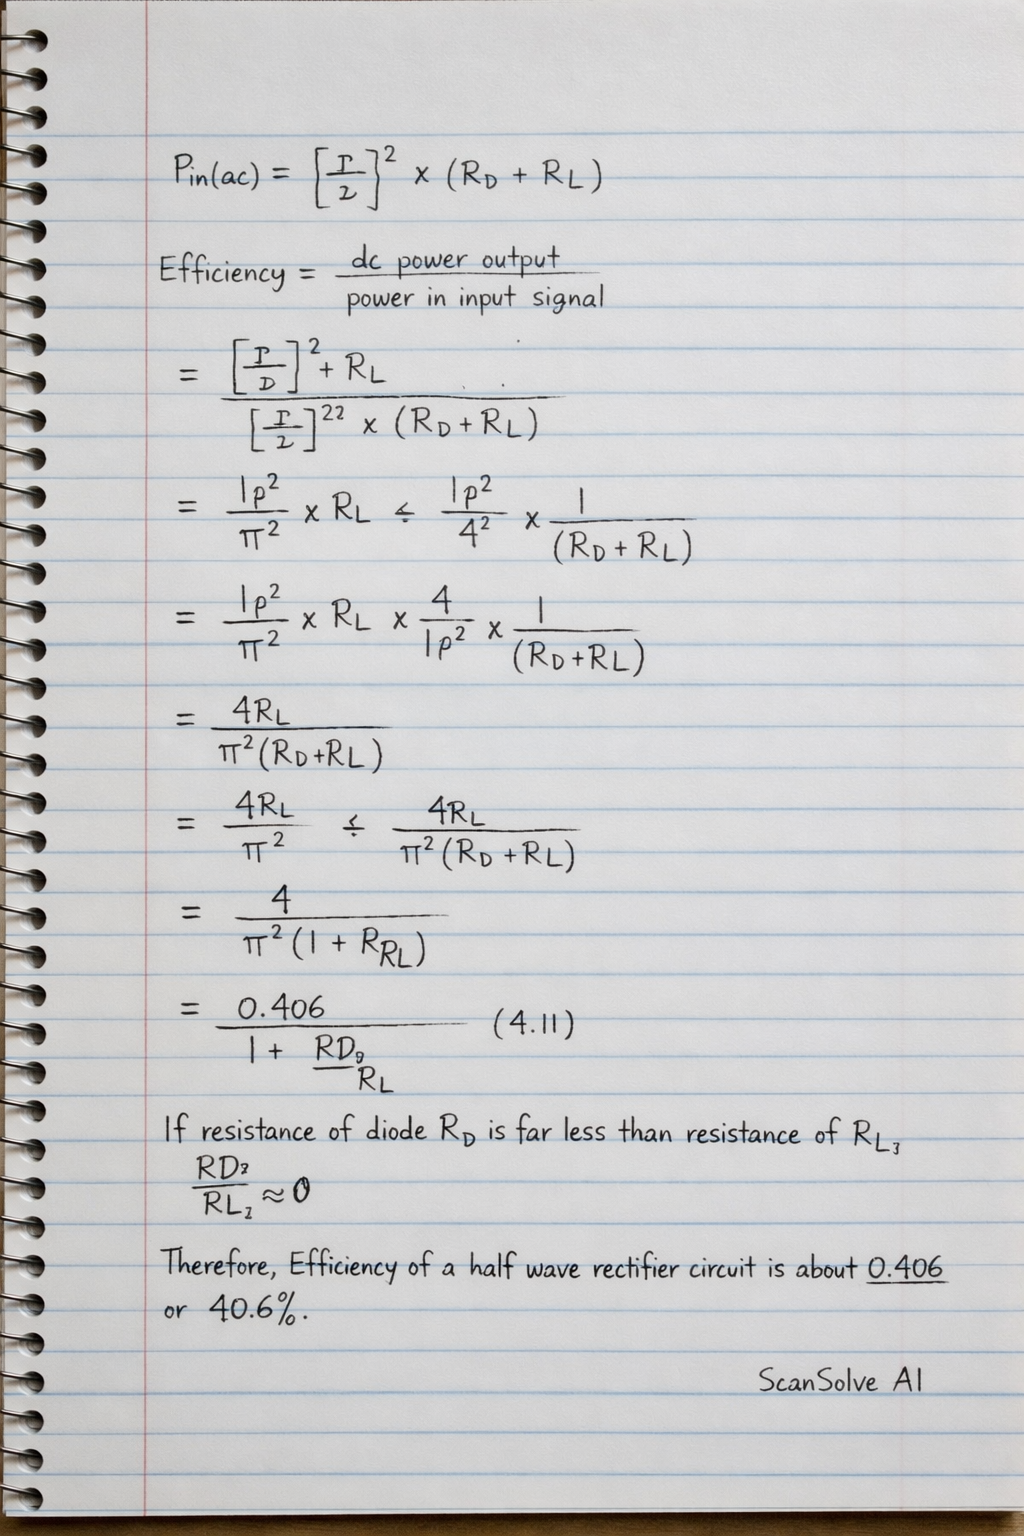 Pin(ac) = [I/2]² × (RD + RL)
Efficiency = dc power output / power in input signal
= [I/D]² + RL / [I/2]²² × (RD + RL)
= Ip²/π² × RL ÷ Ip²/4² × 1/(RD + RL)
= Ip²/π² × RL × 4/Ip² × 1/(RD+RL)
= 4RL / π²(RD+RL)
= 4RL/π² ÷ 4RL / π²(RD+RL)
= 4 / π²(1 + RRL)
= 0.406 / 1 + RD9/RL (4.11)
If resistance of diode RD is far less than resistance of RL,
RD2/RL2 ≈ 0
Therefore, Efficiency of a half wave rectifier circuit is about 0.406
or 40.6%.
ScanSolve AI